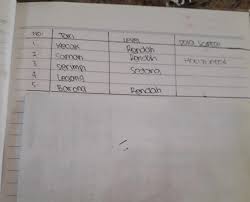 No Tari Level
1 Kecak Rendah
2 Saman Rendah
3 Serimpi Sedang
4 Legong
5 Barong Rendah